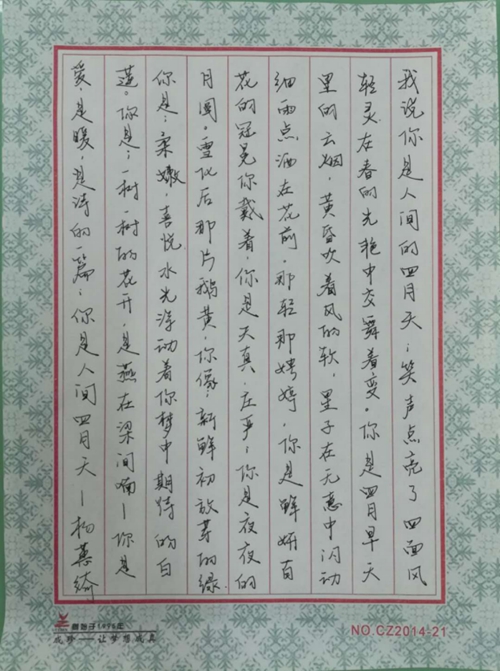 我说你是人间的四月天；笑声点亮了四面风
轻灵在春的光艳中交舞着变。你是四月早天
里的云烟，黄昏吹着风的软，星子在无意中闪动
细雨点洒在花前。那轻那娉婷，你是鲜妍百
花的冠冕你戴着，你是天真，庄严；你是夜夜的
月圆。雪化后那片鹅黄，你像；新鲜初放芽的绿
你是；柔嫩喜悦水光浮动着你梦中期待的白
莲。你是；一树一树的花开，是燕在梁间喃—你是
爱，是暖，是诗的一篇，你是人间四月天—
1998年
成形——让梦想成真
NO.CZ2014-21